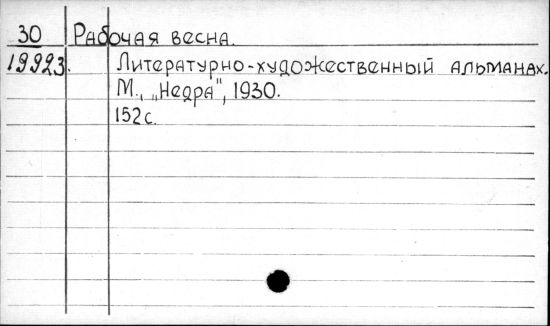 30 Рабочая весна.
19923. Литературно-художественный альманах.
М., „Недра", 1930.
152с.